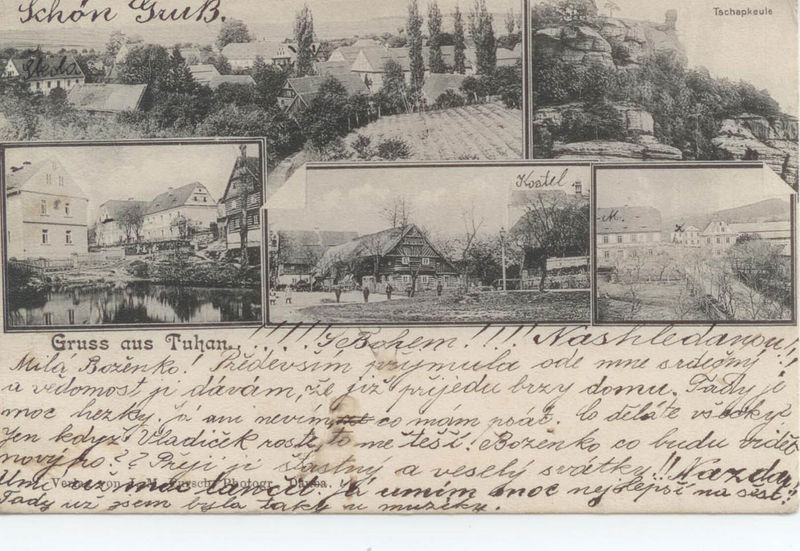 Schön Gruß.
Tschapkeule
Škola
Kostel.
M.
x
Gruss aus Tuhan.
!!!! S Bohem!!!! Nashledanou!!
Milá Boženko! Především přijmula ode mne srdečný
a vědomost ji dávám, že již přijedu brzy domu. Tady je
moc hezky, já ani nevím co mám psát. Co děláte všecky?
Jen když Vladíček roste, to mě těší! Boženko co budu vidět
nového?? Přeji ji šťastný a veselý svátky!! Nazdar!
Verlag von Photogr. Dauba.
Umí už moc tancit. Já umím moc nejlepší na šest!!
Tady už jsem byla taky u muziky.